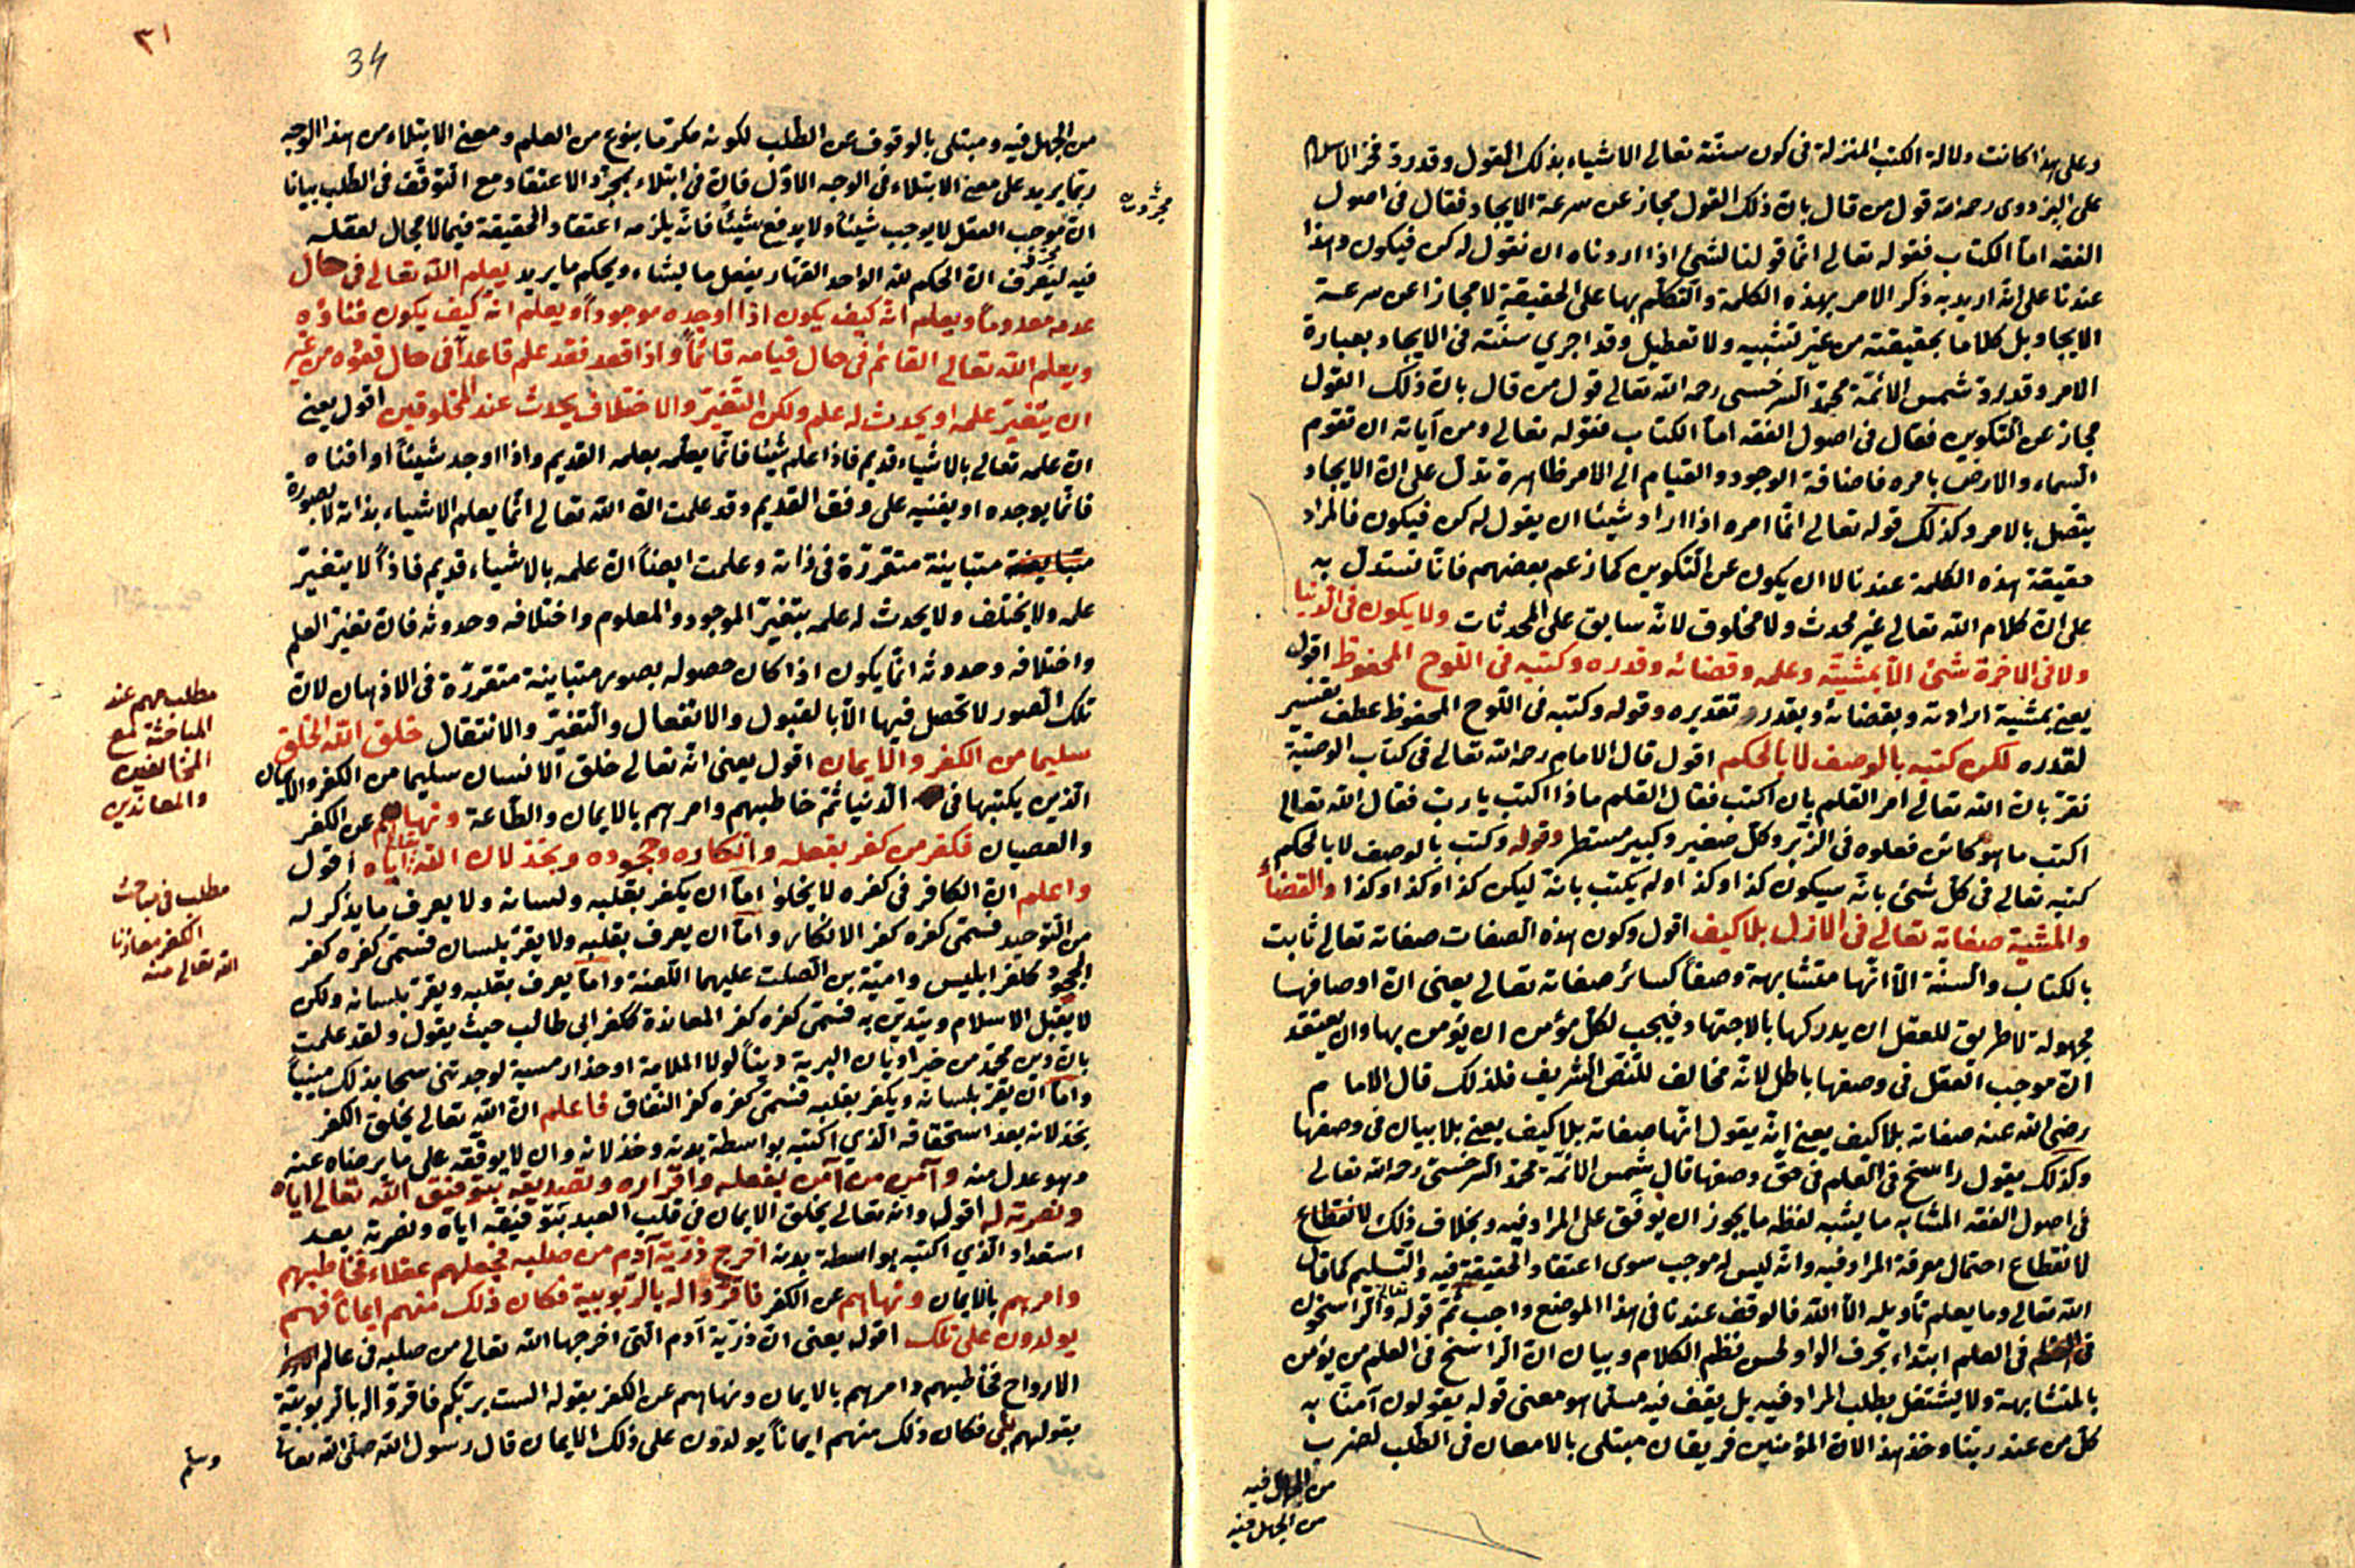 وعلى هذا كانت دلالة الكتب المنزلة فى كون سنته تعالى الاشياء بذلك القول وقد رد فخر الاسلام
على البزدوى رحمه الله قول من قال بان ذلك القول مجاز عن سرعة الايجاد فقال فى اصول
الفقه اما الكتاب فقوله تعالى انما قولنا لشئ اذا اردناه ان نقول له كن فيكون وهذا
عندنا على انه اريد به ذكر الامر بهذه الكلمة والتكلم بها على الحقيقة لا مجازا عن سرعة
الايجاد بل كلاما بحقيقته من غير تشبيه ولا تعطيل وقد اجرى سنته فى الايجاد بعبارة
الامر وقد رد شمس الائمة محمد السرخسى رحمه الله تعالى قول من قال بان ذلك القول
مجاز عن التكوين فقال فى اصول الفقه اما الكتاب فقوله تعالى ومن آياته ان تقوم
السماء والارض بامره فاضافة الوجود والقيام الى الامر ظاهرة تدل على ان الايجاد
يتصل بالامر وكذلك قوله تعالى انما امره اذا اراد شيئا ان يقول له كن فيكون فالمراد
حقيقة هذه الكلمة عندنا لا ان يكون عن التكوين كما زعم بعضهم فانا نستدل به
على ان كلام الله تعالى غير محدث ولا مخلوق لانه سابق على المحدثات ولا يكون فى الدنيا
ولا فى الاخرة شئ الا بمشيته وعلمه وقضائه وقدره وكتبه فى اللوح المحفوظ اقول
يعنى بمشية ارادته وبقضائه وبقدره تقديره وقوله وكتبه فى اللوح المحفوظ عطف تفسير
لقدره لكن كتبه بالوصف لا بالحكم اقول قال الامام رحمه الله تعالى فى كتاب الوصية
نقر بان الله تعالى امر القلم بان اكتب فقال القلم ماذا اكتب يا رب فقال الله تعالى
اكتب ما هو كائن فعلوه فى الزبر وكل صغير وكبير مستطر وقوله وكتب بالوصف لا بالحكم
كتبه تعالى فى كل شئ بانه سيكون كذا وكذا ولم يكتب بانه ليكن كذا وكذا وكذا والقضاء
والمشية صفاته تعالى فى الازل بلا كيف اقول وكون هذه الصفات صفاته تعالى ثابت
بالكتاب والسنة الا انها متشابهة وصفا كسائر صفاته تعالى يعنى ان اوصافها
مجهولة لا طريق للعقل ان يدركها بالاجتهاد فيجب لكل مؤمن ان يؤمن بها وان يعتقد
ان موجب العقل فى وصفها باطل لانه مخالف للنص الشريف فلذلك قال الامام
رضى الله عنه صفاته بلا كيف يعنى انه يقول انها صفاته بلا كيف يعنى بلا بيان فى وصفها
وكذلك يقول راسخ فى العلم فى حق وصفها قال شمس الائمة محمد السرخسى رحمه الله تعالى
فى اصول الفقه المتشابه ما يشبه لفظه ما يجوز ان يوقف على المراد فيه وبخلاف ذلك لانقطاع
لانقطاع احتمال معرفة المراد فيه وانه ليس له موجب سوى اعتقاد الحقيقة فيه والتسليم كما قال
الله تعالى وما يعلم تأويله الا الله فالوقف عندنا فى هذا الموضع واجب ثم قوله تعالى والراسخون
فى العلم ابتداء بحرف الواو لحسن نظم الكلام وبيان ان الراسخ فى العلم من يؤمن
بالمتشابهة ولا يشتغل بطلب المراد فيه بل يقف فيه مسلما هو معنى قوله يقولون آمنا به
كل من عند ربنا وخذ هذا لان المؤمنين فريقان مبتلى بالامعان فى الطلب لضرب
من الجهل فيه
من الجهل فيه
٣١
34
من الجهل فيه ومبتلى بالوقوف عن الطلب لكونه مكرما بنوع من العلم ومعنى الابتلاء من هذا الوجه
ربما يريد على معنى الابتلاء فى الوجه الاول فان فى ابتلاء بمجرد الاعتقاد مع التوقف فى الطلب بيانا
ان موجب العقل لا يوجب شيئا ولا يدفع شيئا فانه يلزمه اعتقاد الحقيقة فيما لا مجال لعقله
فيه ليعرف ان الحكم لله الواحد القهار يفعل ما يشاء ويحكم ما يريد يعلم الله تعالى فى حال
عدمه معدوما ويعلم انه كيف يكون اذا اوجده موجودا ويعلم انه كيف يكون فناؤه
ويعلم الله تعالى القائم فى حال قيامه قائما واذا قعد فقد علم قاعدا فى حال قعوده من غير
ان يتغير علمه او يحدث له علم ولكن التغير والاختلاف يحدث عند المخلوقين اقول يعنى
ان علمه تعالى بالاشياء قديم فاذا علم شيئا فانما يعلمه بعلمه القديم واذا اوجد شيئا او افناه
فانما يوجده او يفنيه على وفق القديم وقد علمت ان الله تعالى انما يعلم الاشياء بذاته لا بصورة
متباينة متقررة فى ذاته وعلمت ايضا ان علمه بالاشياء قديم فاذا لا يتغير
علمه ولا يختلف ولا يحدث له علم بتغير الموجود والمعلوم واختلافه وحدوثه فان تغير العلم
واختلافه وحدوثه انما يكون اذا كان حصوله بصور متباينة متقررة فى الاذهان لان
تلك الصور لا تحصل فيها الا بالقبول والانفعال والتغير والانتقال خلق الله الخلق
سليما من الكفر والايمان اقول يعنى انه تعالى خلق الانسان سليما من الكفر والايمان
الذين يكتبها فى الدنيا ثم خاطبهم وامرهم بالايمان والطاعة ونهاهم عن الكفر
والعصيان فكفر من كفر بفعله وانكاره وجحوده وبخذلان الله تعالى اياه اقول
واعلم ان الكافر فى كفره لا يخلوا اما ان يكفر بقلبه ولسانه ولا يعرف ما يذكر له
من التوحيد فسمى كفره كفر الانكار واما ان يعرف بقلبه ولا يقر بلسان فسمى كفره كفر
الجحود ككفر ابليس وامية بن الصلت عليهما اللعنة واما يعرف بقلبه ويقر بلسانه ولكن
لا يقبل الاسلام ويتدين به فسمى كفره كفر المعاندة ككفر ابى طالب حيث يقول ولقد علمت
بان دين محمد من خير اديان البرية دينا لولا الملامة او حذار مسبة لوجدتنى سمحا بذلك مبينا
واما ان يقر بلسانه ويكفر بقلبه فسمى كفره كفر النفاق فاعلم ان الله تعالى يخلق الكفر
بخذلانه بعد استحقاقه الذى اكتسبه بواسطة بدنه وخذلانه وان لا يوفقه على ما يرضاه عنه
وهو عدل منه وآمن من آمن بفعله واقراره وتصديقه بتوفيق الله تعالى اياه
ونصرته له اقول وانه تعالى يخلق الايمان فى قلب العبد بتوفيقه اياه ونصرته بعد
استعداد الذى اكتسبه بواسطة بدنه اخرج ذرية آدم من صلبه فجعلهم عقلاء فخاطبهم
وامرهم بالايمان ونهاهم عن الكفر فاقروا له بالربوبية فكان ذلك منهم ايمانا فهم
يولدون على تلك اقول يعنى ان ذرية آدم التى اخرجها الله تعالى من صلبه فى عالم
الارواح فخاطبهم وامرهم بالايمان ونهاهم عن الكفر بقوله الست بربكم فاقروا له بالربوبية
بقولهم بلى فكان ذلك منهم ايمانا يولدون على ذلك الايمان قال رسول الله صلى الله تعالى
وسلم
مطلب مهم عند
المباحثة مع
المخالفين
والمعاندين
مطلب فى مباحث
الكفر معاذنا
الله تعالى منه